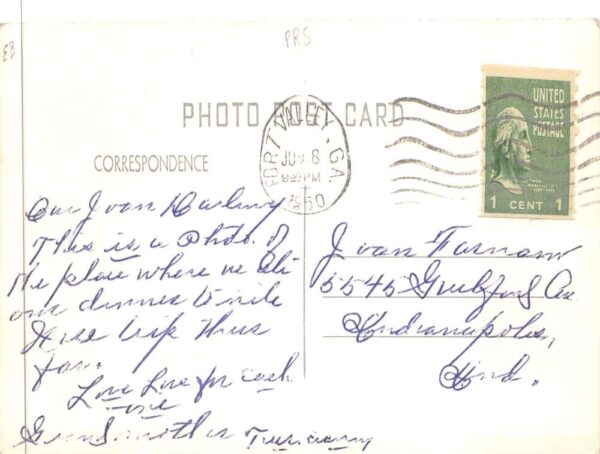 EB
PRS
PHOTO POST CARD
FORT VALLEY, GA.
JUN 8
PM
1950
UNITED
STATES
POSTAGE
1 CENT 1
CORRESPONDENCE
Our Joan
This is a Photo. of
the place where we
our dinner
trip thus
far.
Love Love for each
one
Grandmother
Joan
5545 Guilford Av
Indianapolis,
Ind.